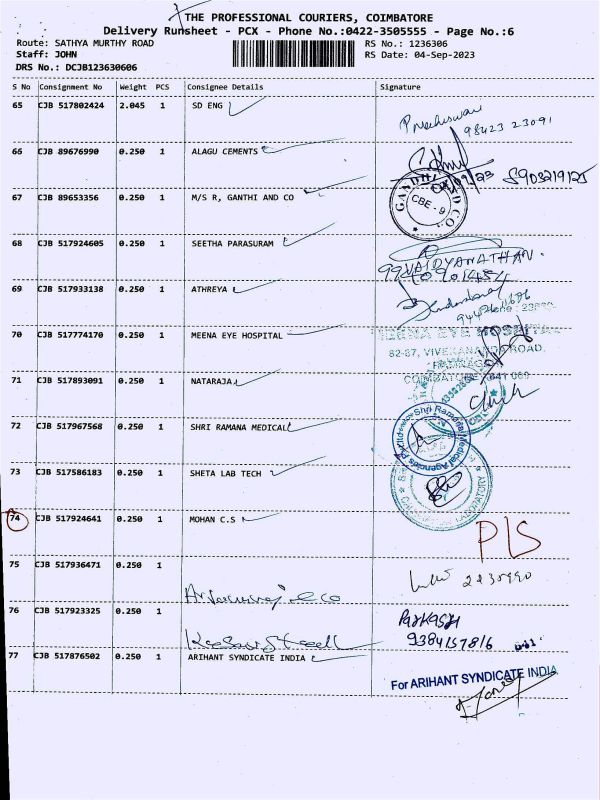 THE PROFESSIONAL COURIERS, COIMBATORE
Delivery Runsheet - PCX - Phone No.:0422-3505555 - Page No.:6
Route: SATHYA MURTHY ROAD
RS No.: 1236306
Staff: JOHN
RS Date: 04-Sep-2023
DRS No.: DCJB123630606
S No Consignment No Weight PCS Consignee Details Signature
65 CJB 517802424 2.045 1 SD ENG
98423 23091
66 CJB 89676990 0.250 1 ALAGU CEMENTS
67 CJB 89653356 0.250 1 M/S R, GANTHI AND CO
CBE - 9
68 CJB 517924605 0.250 1 SEETHA PARASURAM
VAIDYANATHAN
69 CJB 517933138 0.250 1 ATHREYA
70 CJB 517774170 0.250 1 MEENA EYE HOSPITAL
EYE HOSPITAL
82-87, VIVEKANANDA ROAD,
RAMNAGAR
COIMBATORE 641 009
71 CJB 517893091 0.250 1 NATARAJA
72 CJB 517967568 0.250 1 SHRI RAMANA MEDICAL
Shri Ramana Medical Agencies
73 CJB 517586183 0.250 1 SHETA LAB TECH
74 CJB 517924641 0.250 1 MOHAN C.S
P/S
75 CJB 517936471 0.250 1
2235990
76 CJB 517923325 0.250 1
9384157816
77 CJB 517876502 0.250 1 ARIHANT SYNDICATE INDIA
For ARIHANT SYNDICATE INDIA